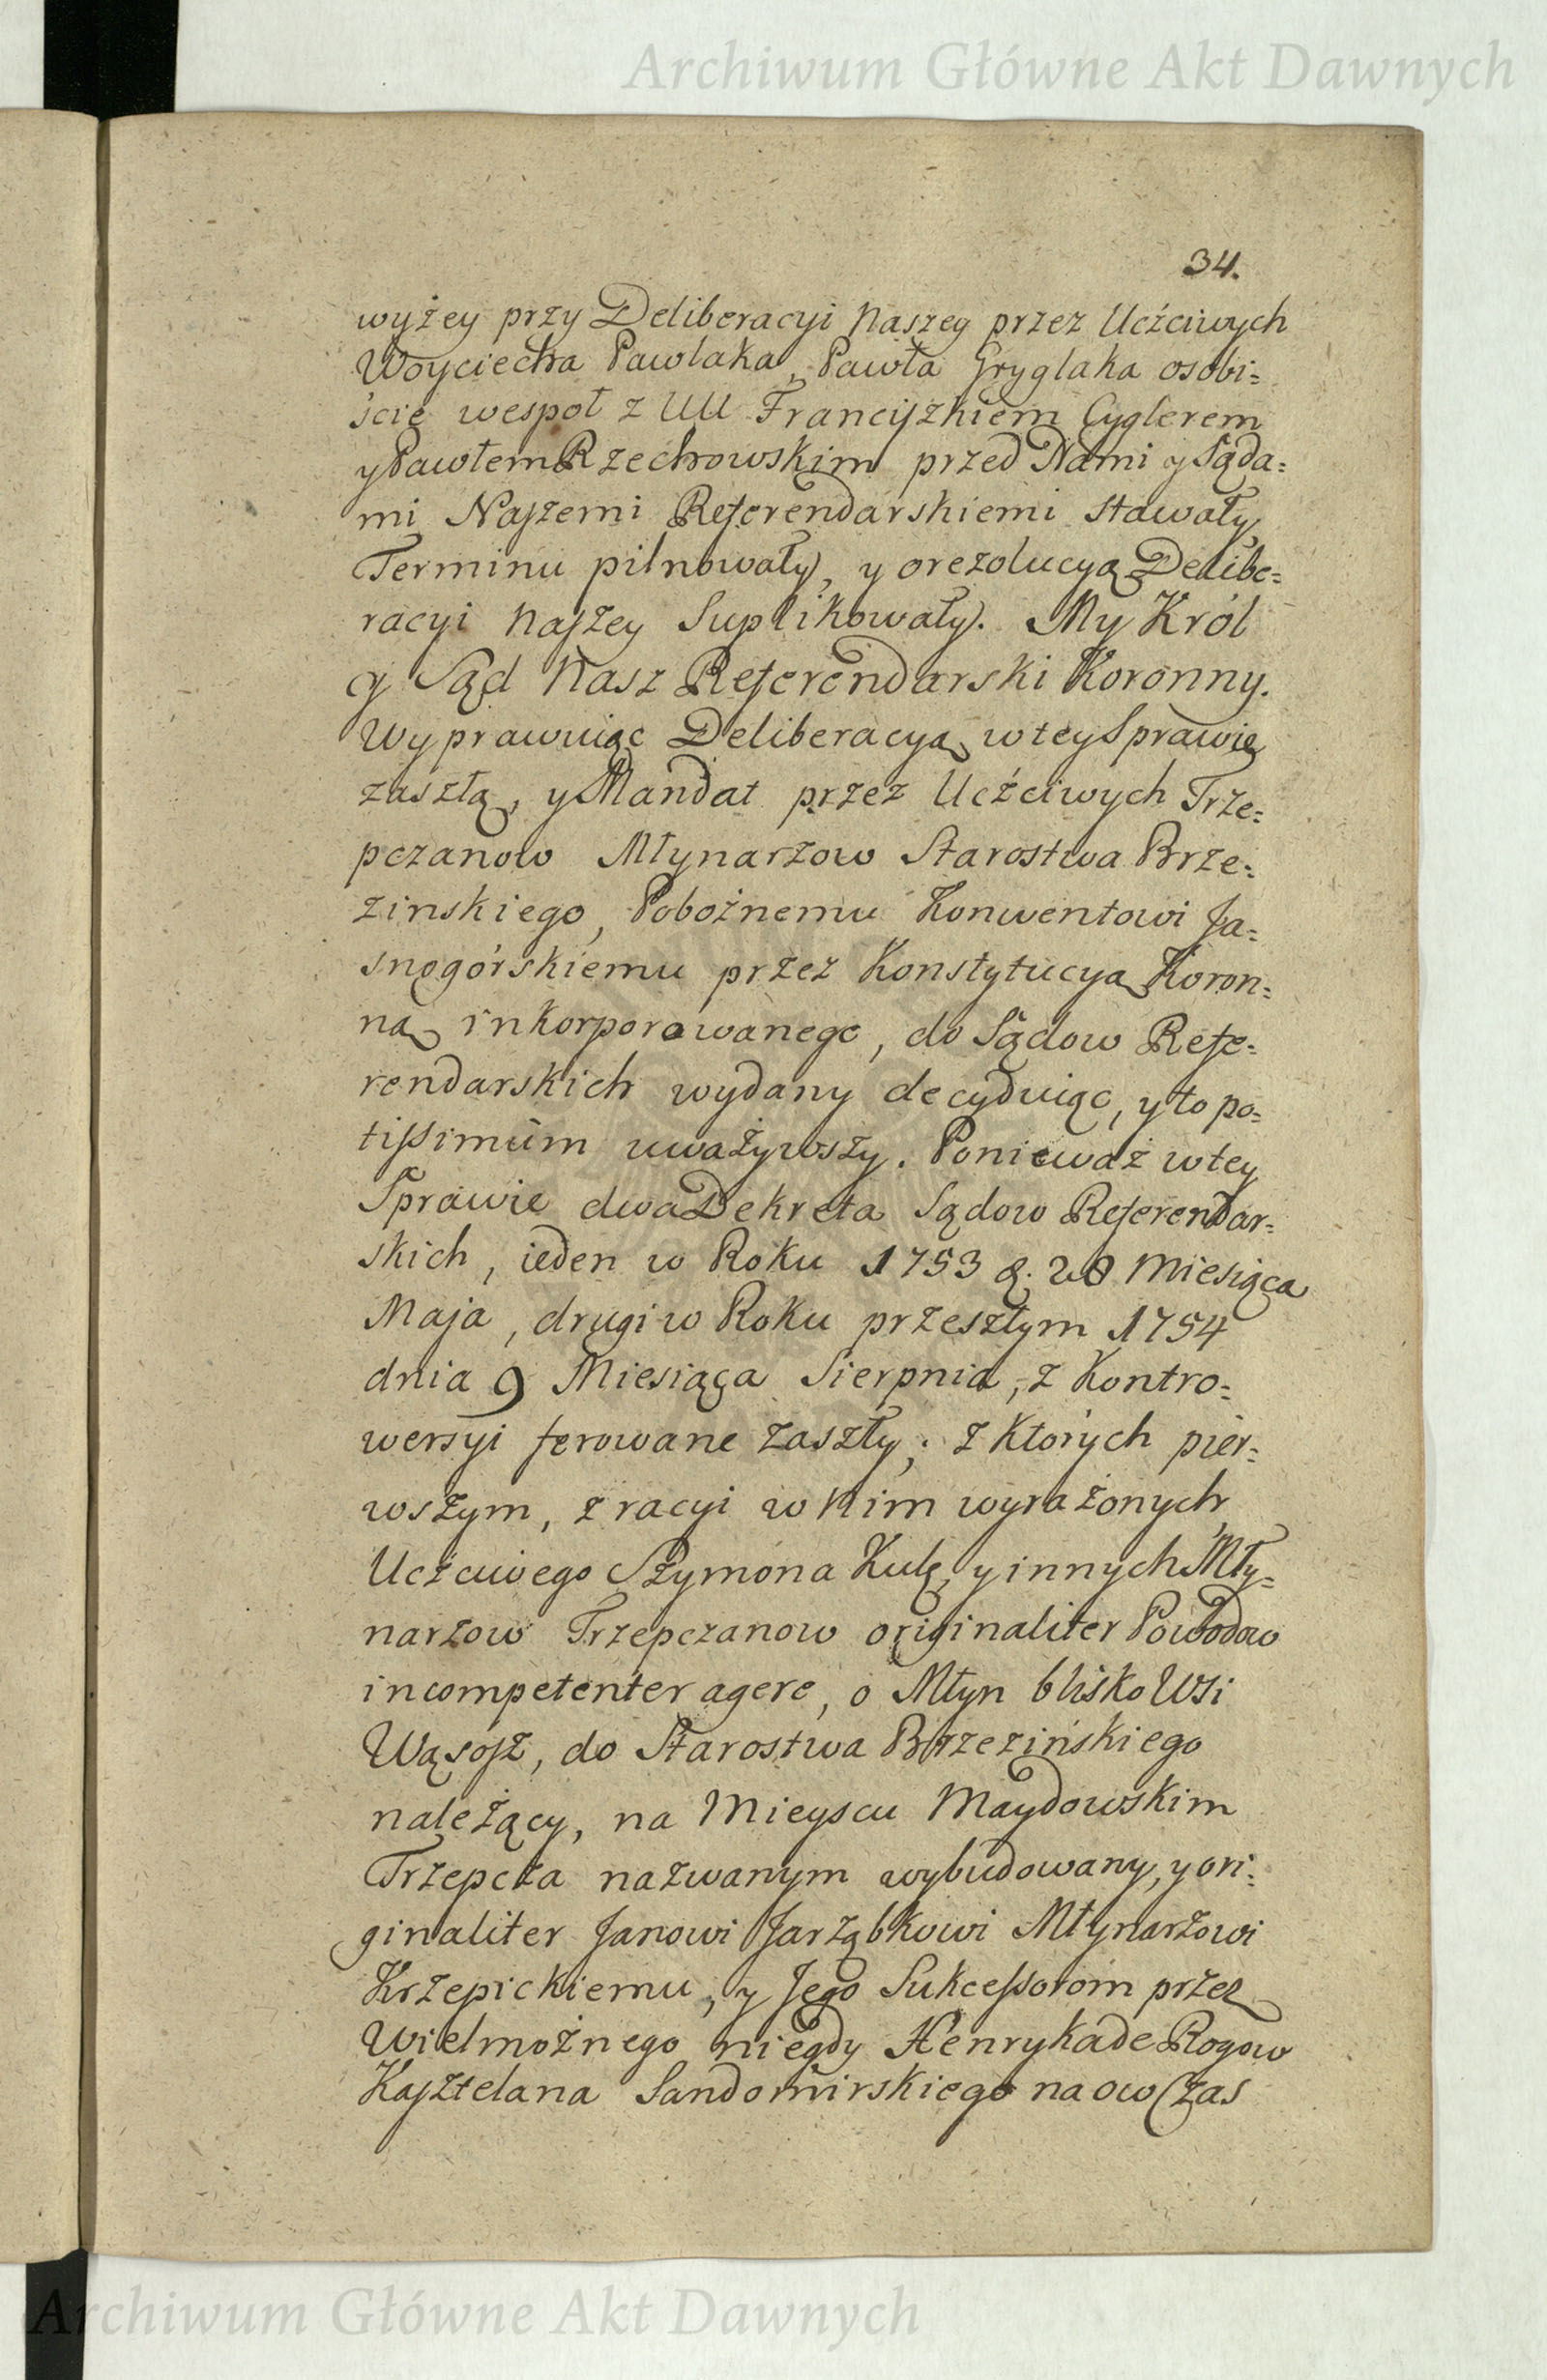 Archiwum Główne Akt Dawnych
34.
wyżey przy Deliberacyi Naszey przez Ućźciwych
Woyciecha Pawlaka, Pawła Gryglaka osobi=
ście wespoł z UU Franciszkiem Cyglerem
y Pawłem Rzechowskim przed Nami y Sąda=
mi Naszemi Referendarskiemi stawały,
Terminu pilnowały, y o rezolucyą Delibe=
racyi naszey Suplikowały. My Król
y Sąd Nasz Referendarski Koronny.
Wyprawuiąc Deliberacyą w tey Sprawie
zaszłą, y Mandat przez Ucźciwych Trze=
pczanow Młynarzow Starostwa Brze=
zinskiego, Pobożnemu Konwentowi Ja=
snogórskiemu przez Konstytucyą Koron=
ną inkorporowanego, do Sądow Refe=
rendarskich wydany decyduiąc, y to po=
tissimùm uważywszy. Ponieważ w tey
Sprawie dwa Dekreta Sądow Referendar=
skich, ieden w Roku 1753 d. 28 Miesiąca
Maja, drugi w Roku przeszłym 1754
dnia 9 Miesiąca Sierpnia, z Kontro=
wersyi ferowane zaszły; z ktorych pier=
wszym, z racyi w nim wyrażonych,
Ucźciwego Szymona Kulę, y innych Mły=
narzow Trzepczanow originaliter Powodow
incompetenter agere, o Młyn blisko Wsi
Wąsósz, do Starostwa Brzezińskiego
należący, na Mieyscu Maydowskim
Trzepcza nazwanym wybudowany, y ori=
ginaliter Janowi Jarząbkowi Młynarzowi
Krzepickiemu, y Jego Sukcessorom przez
Wielmożnego niegdy Henryka de Rogow
Kasztelana Sandomirskiego na ow czas
Archiwum Główne Akt Dawnych